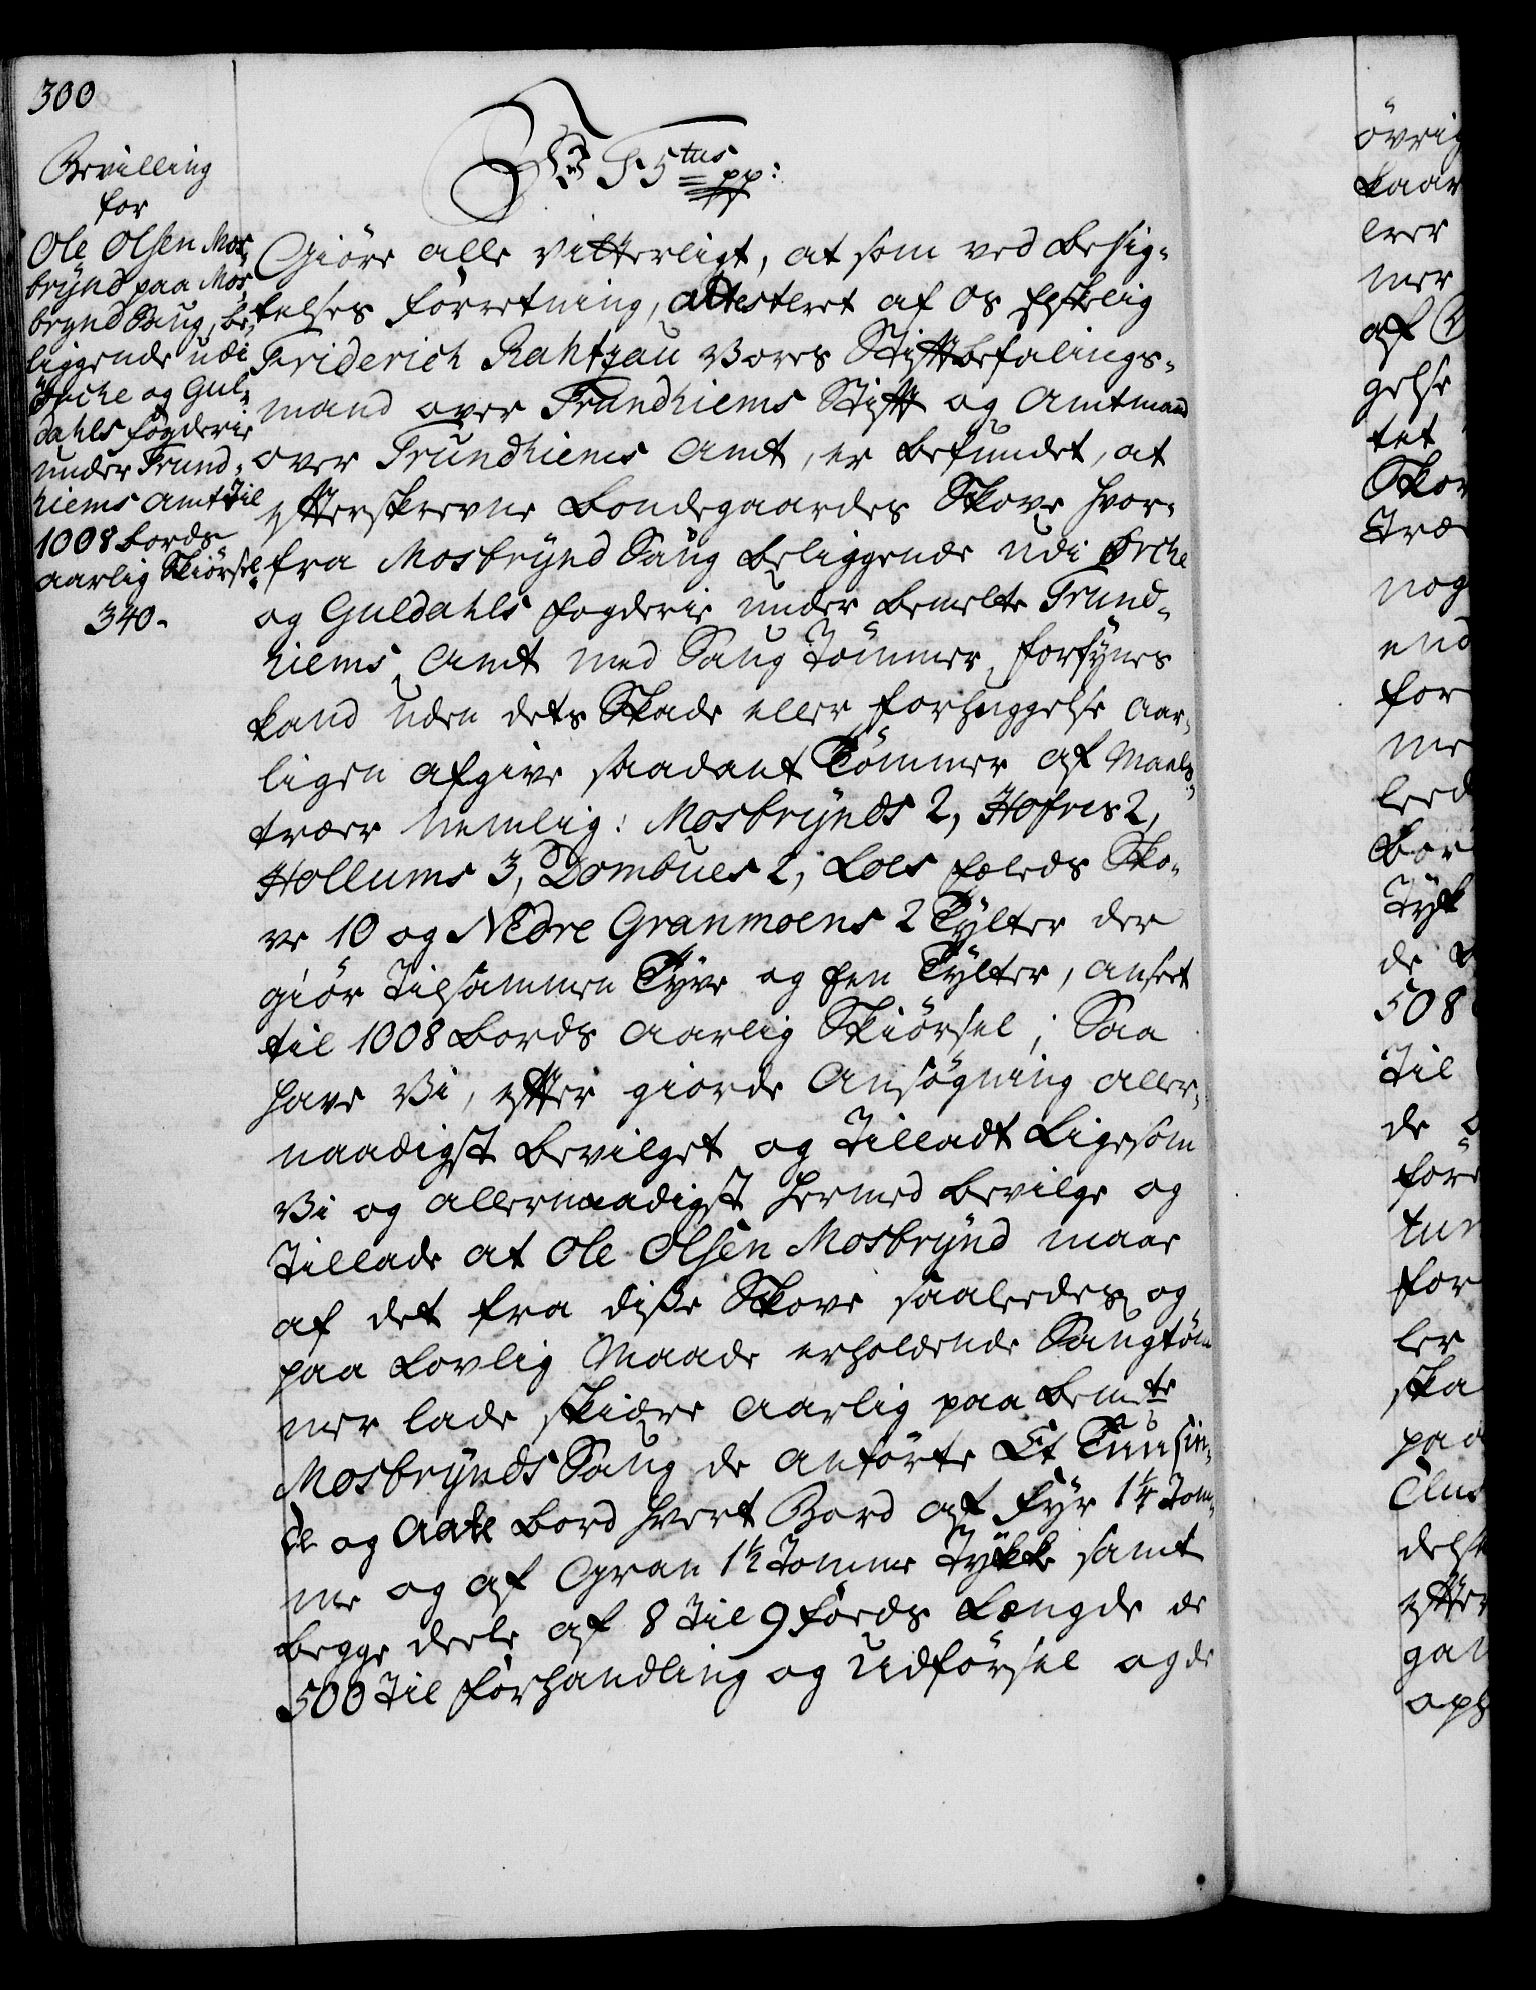 300
Bevilling
for
Ole Olsen Mos-
brÿnd paa Mos-
brynd Saug, be-
liggende udi
Ørche og Gul-
dahls fogderie
under Trund-
hiems Amt til
1008 Bords
aarlig Skiörsel
340.
Vi F 5tus pp:
Giöre alle vitterligt, at som ved besig-
telses forretning, attesteret af os Elskelig
Friderich Rahtzau Vores Stiftbefalings-
mand over Trundhiems Stift og Amtmand
over Trundhiems Amt, er befundet, at
efterskrevne Bondegaardes Skove hvor-
fra Mosbrÿnd Saug beliggende udi Ørche
og Guldahls fogderie under bemelte Trund-
hiems Amt med Saug Tömmer forsÿnes
kand uden dets Skade eller forhuggelse aar-
ligen afgive saadant Tömmer af Maals-
træer nemlig: Mosbrÿnds 2, Hofves 2,
Hollums 3, Dombues 2, Loes fæleds Sko-
ve 10 og Nedre Granmoens 2 Tÿlter der
giör tilsammen Tÿve og Een Tÿlter, anseet
til 1008 Bords aarlig Skiörsel; Saa
have Vi, efter giorde Ansögning aller-
naadigst bevilget og tilladt Ligesom
Vi og allernaadigst hermed bevilge og
tillade at Ole Olsen Mosbrÿnd maae
af det fra diße Skove saaledes og
paa Lovlig Maade erholdende Saugtöm-
mer lade skiære aarlig paa bemte
Mosbrÿnds Saug de anförte Et Tusin-
de og Aate Bord hvert Bord af Fÿr 1¼ Tom-
me og af Gran 1½ Tomme Tÿkke samt
begge deele af 8 til 9 foeds Længde de
500 til forhandling og Udförsel og de
övrig
kaar
lver
mer
af
gelse
tet
Skov
træ
nog
end
for
me
leed
Bor
Tÿk
de
508
til
de
före
tur
for
ler
ska
paa
dels
efter
gan
oph